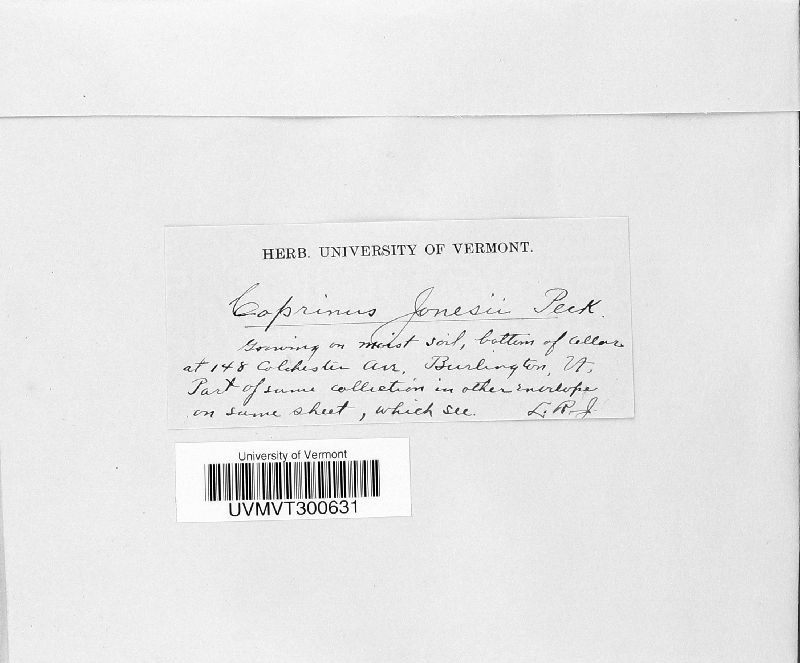 HERB. UNIVERSITY OF VERMONT.
Coprinus Jonesii Peck.
Growing on moist soil, bottom of cellar
at 148 Colchester Ave, Burlington, Vt.
Part of same collection in other envelope
on same sheet, which see. L. R. J.
University of Vermont
UVMVT300631